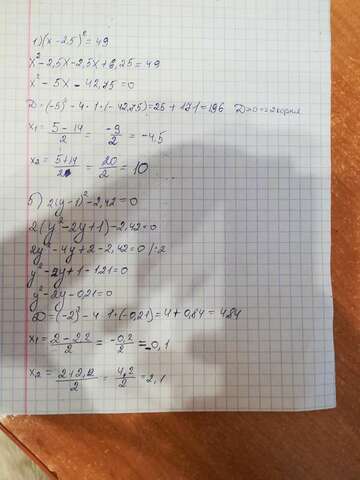 1) (x - 2,5)² = 49
x² - 2,5x - 2,5x + 6,25 = 49
x² - 5x - 42,75 = 0
D = (-5)² - 4 · 1 · (-42,75) = 25 + 171 = 196 D > 0 => 2 корня
x₁ = (5 - 14)/2 = -9/2 = -4,5
x₂ = (5 + 14)/2 = 20/2 = 10
б) 2(y - 1)² - 2,42 = 0
2(y² - 2y + 1) - 2,42 = 0
2y² - 4y + 2 - 2,42 = 0 /:2
y² - 2y + 1 - 1,21 = 0
y² - 2y - 0,21 = 0
D = (-2)² - 4 · 1 · (-0,21) = 4 + 0,84 = 4,84
x₁ = (2 - 2,2)/2 = -0,2/2 = -0,1
x₂ = (2 + 2,2)/2 = 4,2/2 = 2,1